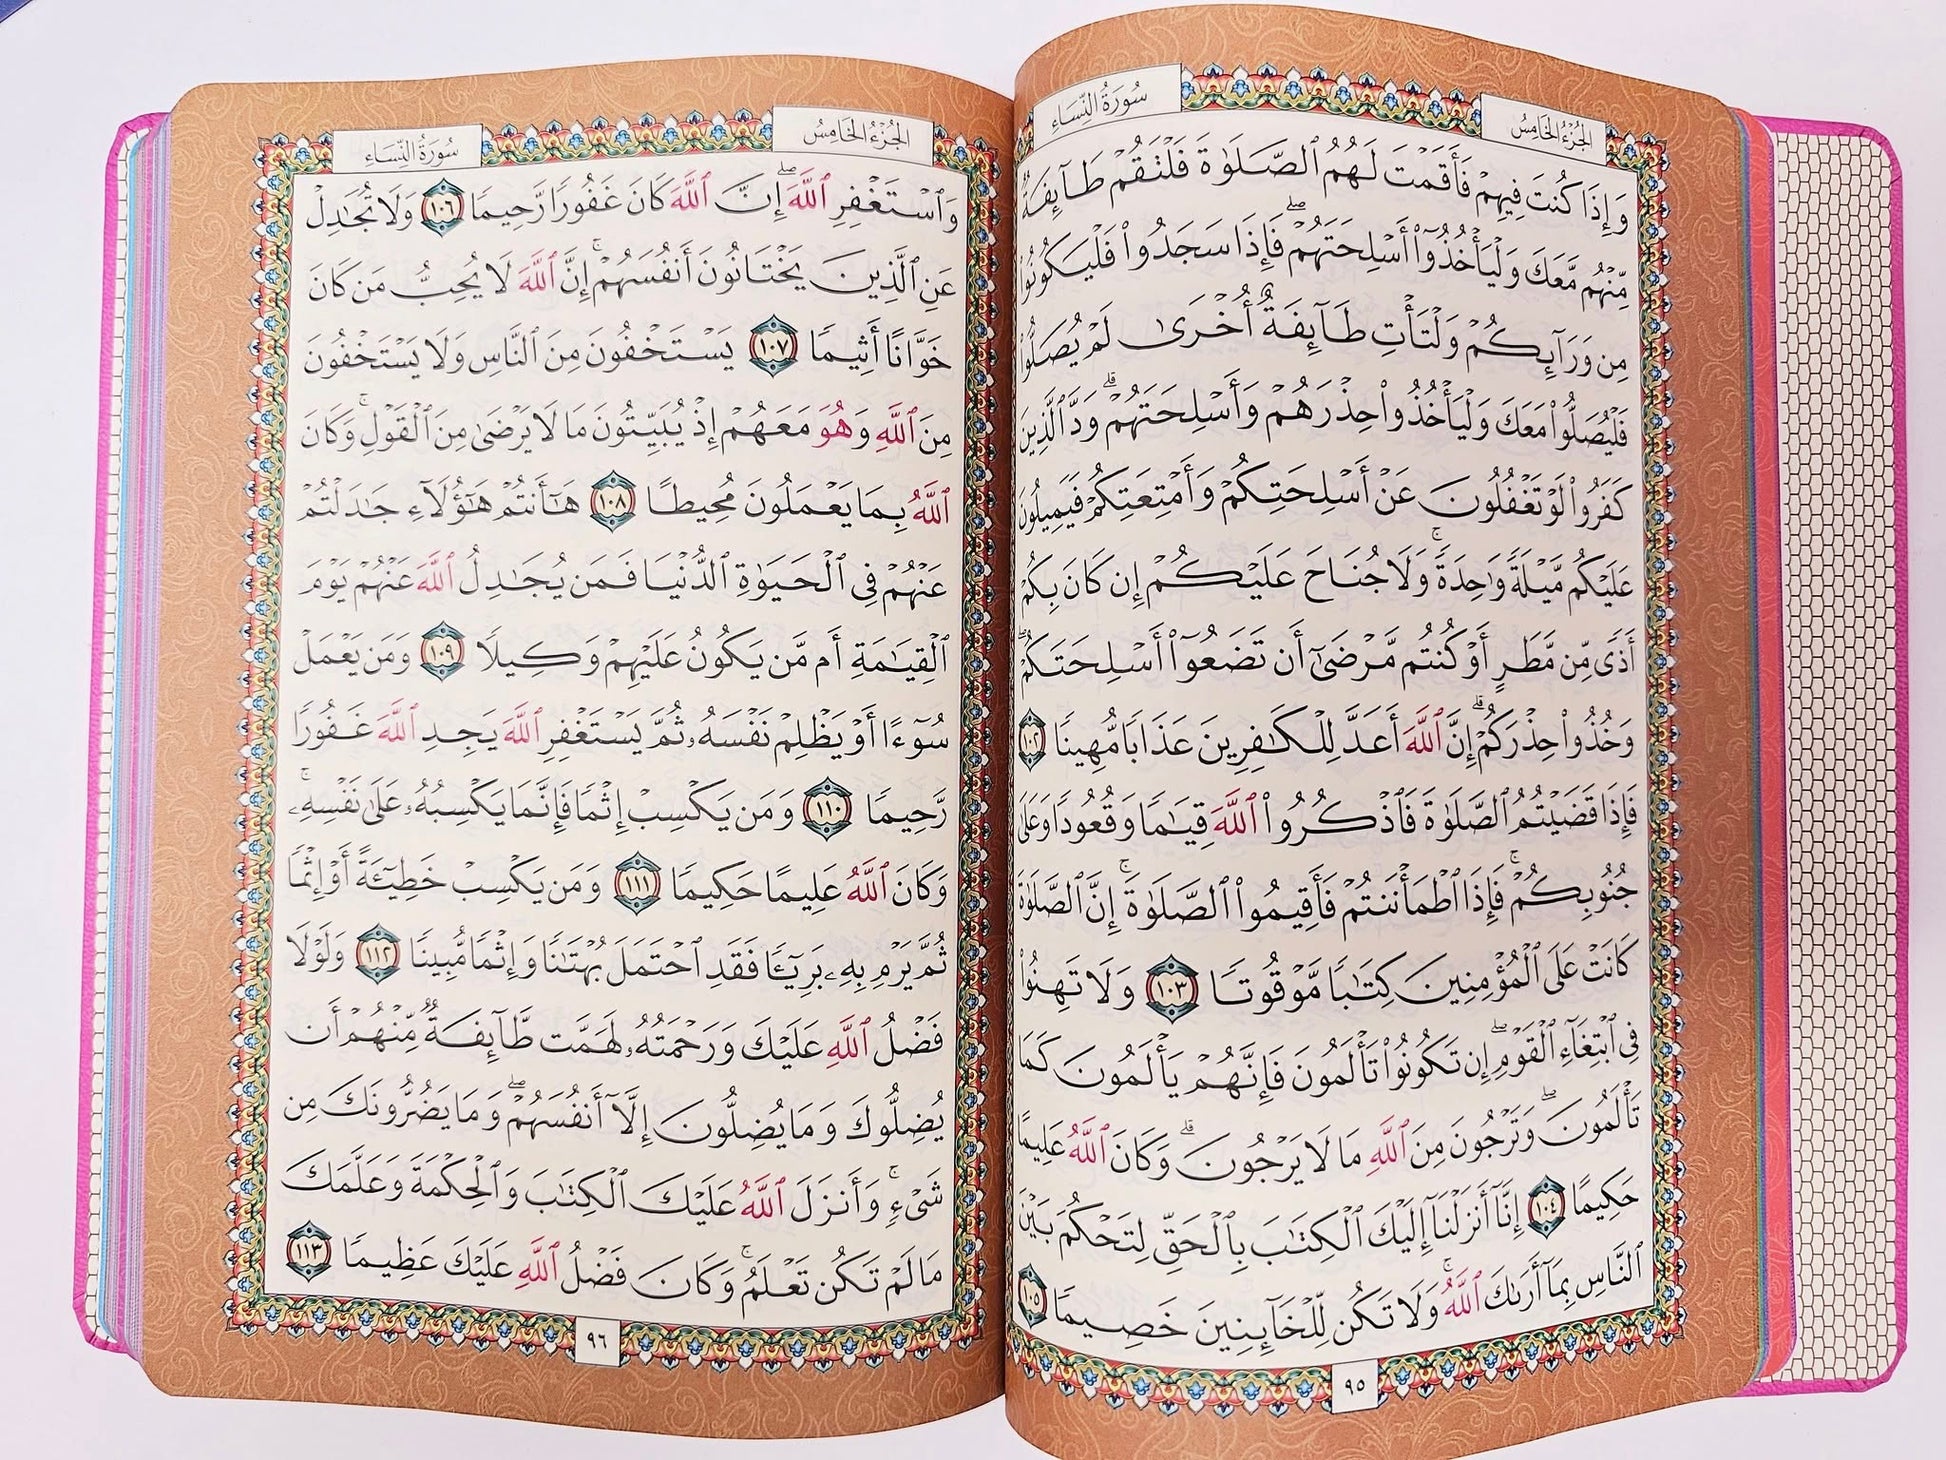 الجُزْءُ الخَامِسُ
سُورَةُ النِّسَاءِ
وَإِذَا كُنتَ فِيهِمۡ فَأَقَمۡتَ لَهُمُ ٱلصَّلَوٰةَ فَلۡتَقُمۡ طَآئِفَةٞ
مِّنۡهُم مَّعَكَ وَلۡيَأۡخُذُوٓاْ أَسۡلِحَتَهُمۡۖ فَإِذَا سَجَدُواْ فَلۡيَكُونُواْ
مِن وَرَآئِكُمۡ وَلۡتَأۡتِ طَآئِفَةٌ أُخۡرَىٰ لَمۡ يُصَلُّواْ
فَلۡيُصَلُّواْ مَعَكَ وَلۡيَأۡخُذُواْ حِذۡرَهُمۡ وَأَسۡلِحَتَهُمۡۗ وَدَّ ٱلَّذِينَ
كَفَرُواْ لَوۡ تَغۡفُلُونَ عَنۡ أَسۡلِحَتِكُمۡ وَأَمۡتِعَتِكُمۡ فَيَمِيلُونَ
عَلَيۡكُم مَّيۡلَةٗ وَٰحِدَةٗۚ وَلَا جُنَاحَ عَلَيۡكُمۡ إِن كَانَ بِكُمۡ
أَذٗى مِّن مَّطَرٍ أَوۡ كُنتُم مَّرۡضَىٰٓ أَن تَضَعُوٓاْ أَسۡلِحَتَكُمۡۖ
وَخُذُواْ حِذۡرَكُمۡۗ إِنَّ ٱللَّهَ أَعَدَّ لِلۡكَٰفِرِينَ عَذَابٗا مُّهِينٗا ١٠٢
فَإِذَا قَضَيۡتُمُ ٱلصَّلَوٰةَ فَٱذۡكُرُواْ ٱللَّهَ قِيَٰمٗا وَقُعُودٗا وَعَلَىٰ
جُنُوبِكُمۡۚ فَإِذَا ٱطۡمَأۡنَنتُمۡ فَأَقِيمُواْ ٱلصَّلَوٰةَۚ إِنَّ ٱلصَّلَوٰةَ
كَانَتۡ عَلَى ٱلۡمُؤۡمِنِينَ كِتَٰبٗا مَّوۡقُوتٗا ١٠٣ وَلَا تَهِنُواْ
فِي ٱبۡتِغَآءِ ٱلۡقَوۡمِۖ إِن تَكُونُواْ تَأۡلَمُونَ فَإِنَّهُمۡ يَأۡلَمُونَ كَمَا
تَأۡلَمُونَۖ وَتَرۡجُونَ مِنَ ٱللَّهِ مَا لَا يَرۡجُونَۗ وَكَانَ ٱللَّهُ عَلِيمًا
حَكِيمٗا ١٠٤ إِنَّآ أَنزَلۡنَآ إِلَيۡكَ ٱلۡكِتَٰبَ بِٱلۡحَقِّ لِتَحۡكُمَ بَيۡنَ
ٱلنَّاسِ بِمَآ أَرَىٰكَ ٱللَّهُۚ وَلَا تَكُن لِّلۡخَآئِنِينَ خَصِيمٗا ١٠٥
٩٥
الجُزْءُ الخَامِسُ
سُورَةُ النِّسَاءِ
وَٱسۡتَغۡفِرِ ٱللَّهَۖ إِنَّ ٱللَّهَ كَانَ غَفُورٗا رَّحِيمٗا ١٠٦ وَلَا تُجَٰدِلۡ
عَنِ ٱلَّذِينَ يَخۡتَانُونَ أَنفُسَهُمۡۚ إِنَّ ٱللَّهَ لَا يُحِبُّ مَن كَانَ
خَوَّانًا أَثِيمٗا ١٠٧ يَسۡتَخۡفُونَ مِنَ ٱلنَّاسِ وَلَا يَسۡتَخۡفُونَ
مِنَ ٱللَّهِ وَهُوَ مَعَهُمۡ إِذۡ يُبَيِّتُونَ مَا لَا يَرۡضَىٰ مِنَ ٱلۡقَوۡلِۚ وَكَانَ
ٱللَّهُ بِمَا يَعۡمَلُونَ مُحِيطًا ١٠٨ هَٰٓأَنتُمۡ هَٰٓؤُلَآءِ جَٰدَلۡتُمۡ
عَنۡهُمۡ فِي ٱلۡحَيَوٰةِ ٱلدُّنۡيَا فَمَن يُجَٰدِلُ ٱللَّهَ عَنۡهُمۡ يَوۡمَ
ٱلۡقِيَٰمَةِ أَم مَّن يَكُونُ عَلَيۡهِمۡ وَكِيلٗا ١٠٩ وَمَن يَعۡمَلۡ
سُوٓءًا أَوۡ يَظۡلِمۡ نَفۡسَهُۥ ثُمَّ يَسۡتَغۡفِرِ ٱللَّهَ يَجِدِ ٱللَّهَ غَفُورٗا
رَّحِيمٗا ١١٠ وَمَن يَكۡسِبۡ إِثۡمٗا فَإِنَّمَا يَكۡسِبُهُۥ عَلَىٰ نَفۡسِهِۦۚ
وَكَانَ ٱللَّهُ عَلِيمًا حَكِيمٗا ١١١ وَمَن يَكۡسِبۡ خَطِيٓـَٔةً أَوۡ إِثۡمٗا
ثُمَّ يَرۡمِ بِهِۦ بَرِيٓـٔٗا فَقَدِ ٱحۡتَمَلَ بُهۡتَٰنٗا وَإِثۡمٗا مُّبِينٗا ١١٢ وَلَوۡلَا
فَضۡلُ ٱللَّهِ عَلَيۡكَ وَرَحۡمَتُهُۥ لَهَمَّت طَّآئِفَةٞ مِّنۡهُمۡ أَن
يُضِلُّوكَ وَمَا يُضِلُّونَ إِلَّآ أَنفُسَهُمۡۖ وَمَا يَضُرُّونَكَ مِن
شَيۡءٖۚ وَأَنزَلَ ٱللَّهُ عَلَيۡكَ ٱلۡكِتَٰبَ وَٱلۡحِكۡمَةَ وَعَلَّمَكَ
مَا لَمۡ تَكُن تَعۡلَمُۚ وَكَانَ فَضۡلُ ٱللَّهِ عَلَيۡكَ عَظِيمٗا ١١٣
٩٦